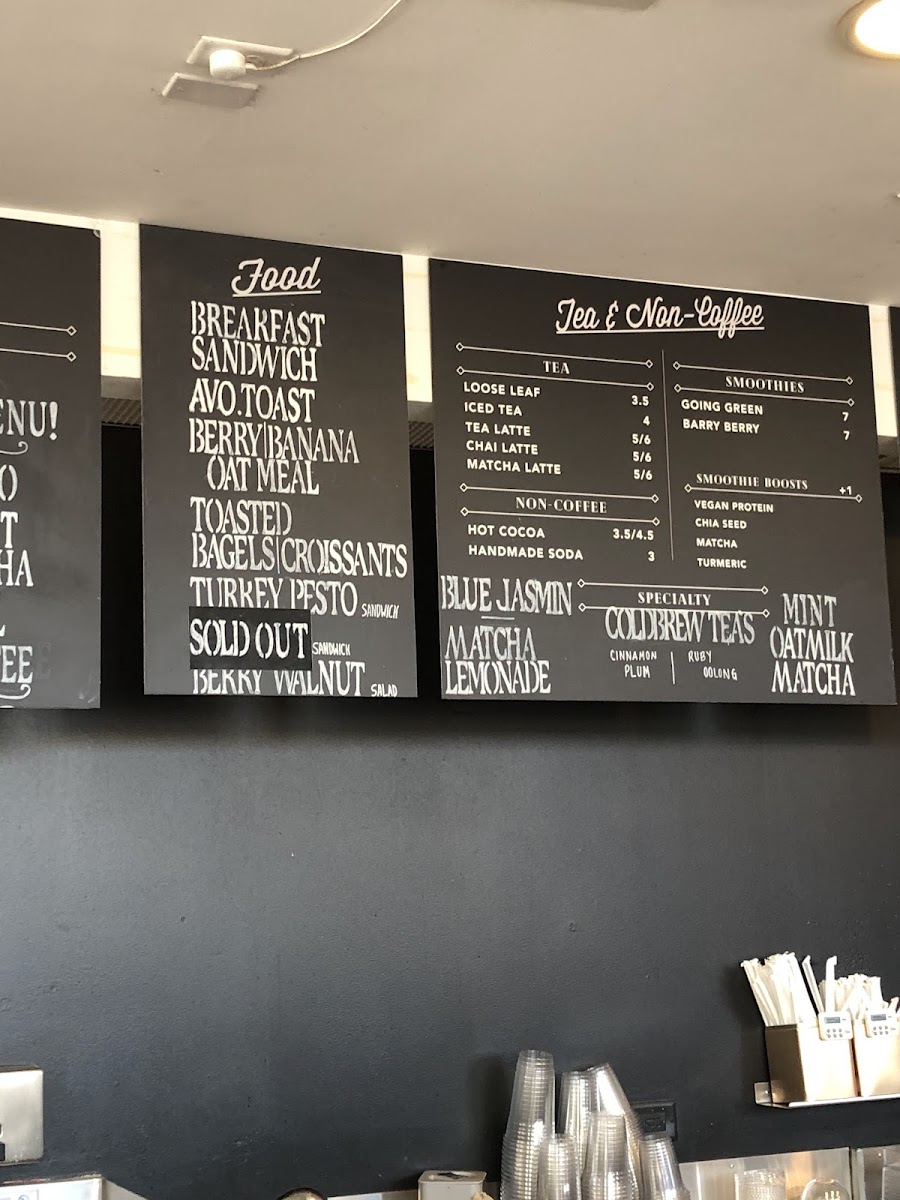 ENU!
O
T
HA
EE
Food
BREAKFAST
SANDWICH
AVO.TOAST
BERRY|BANANA
OAT MEAL
TOASTED
BAGELS|CROISSANTS
TURKEY PESTO SANDWICH
SOLD OUT SANDWICH
BERRY WALNUT SALAD
Tea & Non-Coffee
TEA
LOOSE LEAF 3.5
ICED TEA 4
TEA LATTE 5/6
CHAI LATTE 5/6
MATCHA LATTE 5/6
NON-COFFEE
HOT COCOA 3.5/4.5
HANDMADE SODA 3
SMOOTHIES
GOING GREEN 7
BARRY BERRY 7
SMOOTHIE BOOSTS +1
VEGAN PROTEIN
CHIA SEED
MATCHA
TURMERIC
BLUE JASMIN
MATCHA
LEMONADE
SPECIALTY
COLDBREW TEAS
CINNAMON PLUM | RUBY OOLONG
MINT
OATMILK
MATCHA